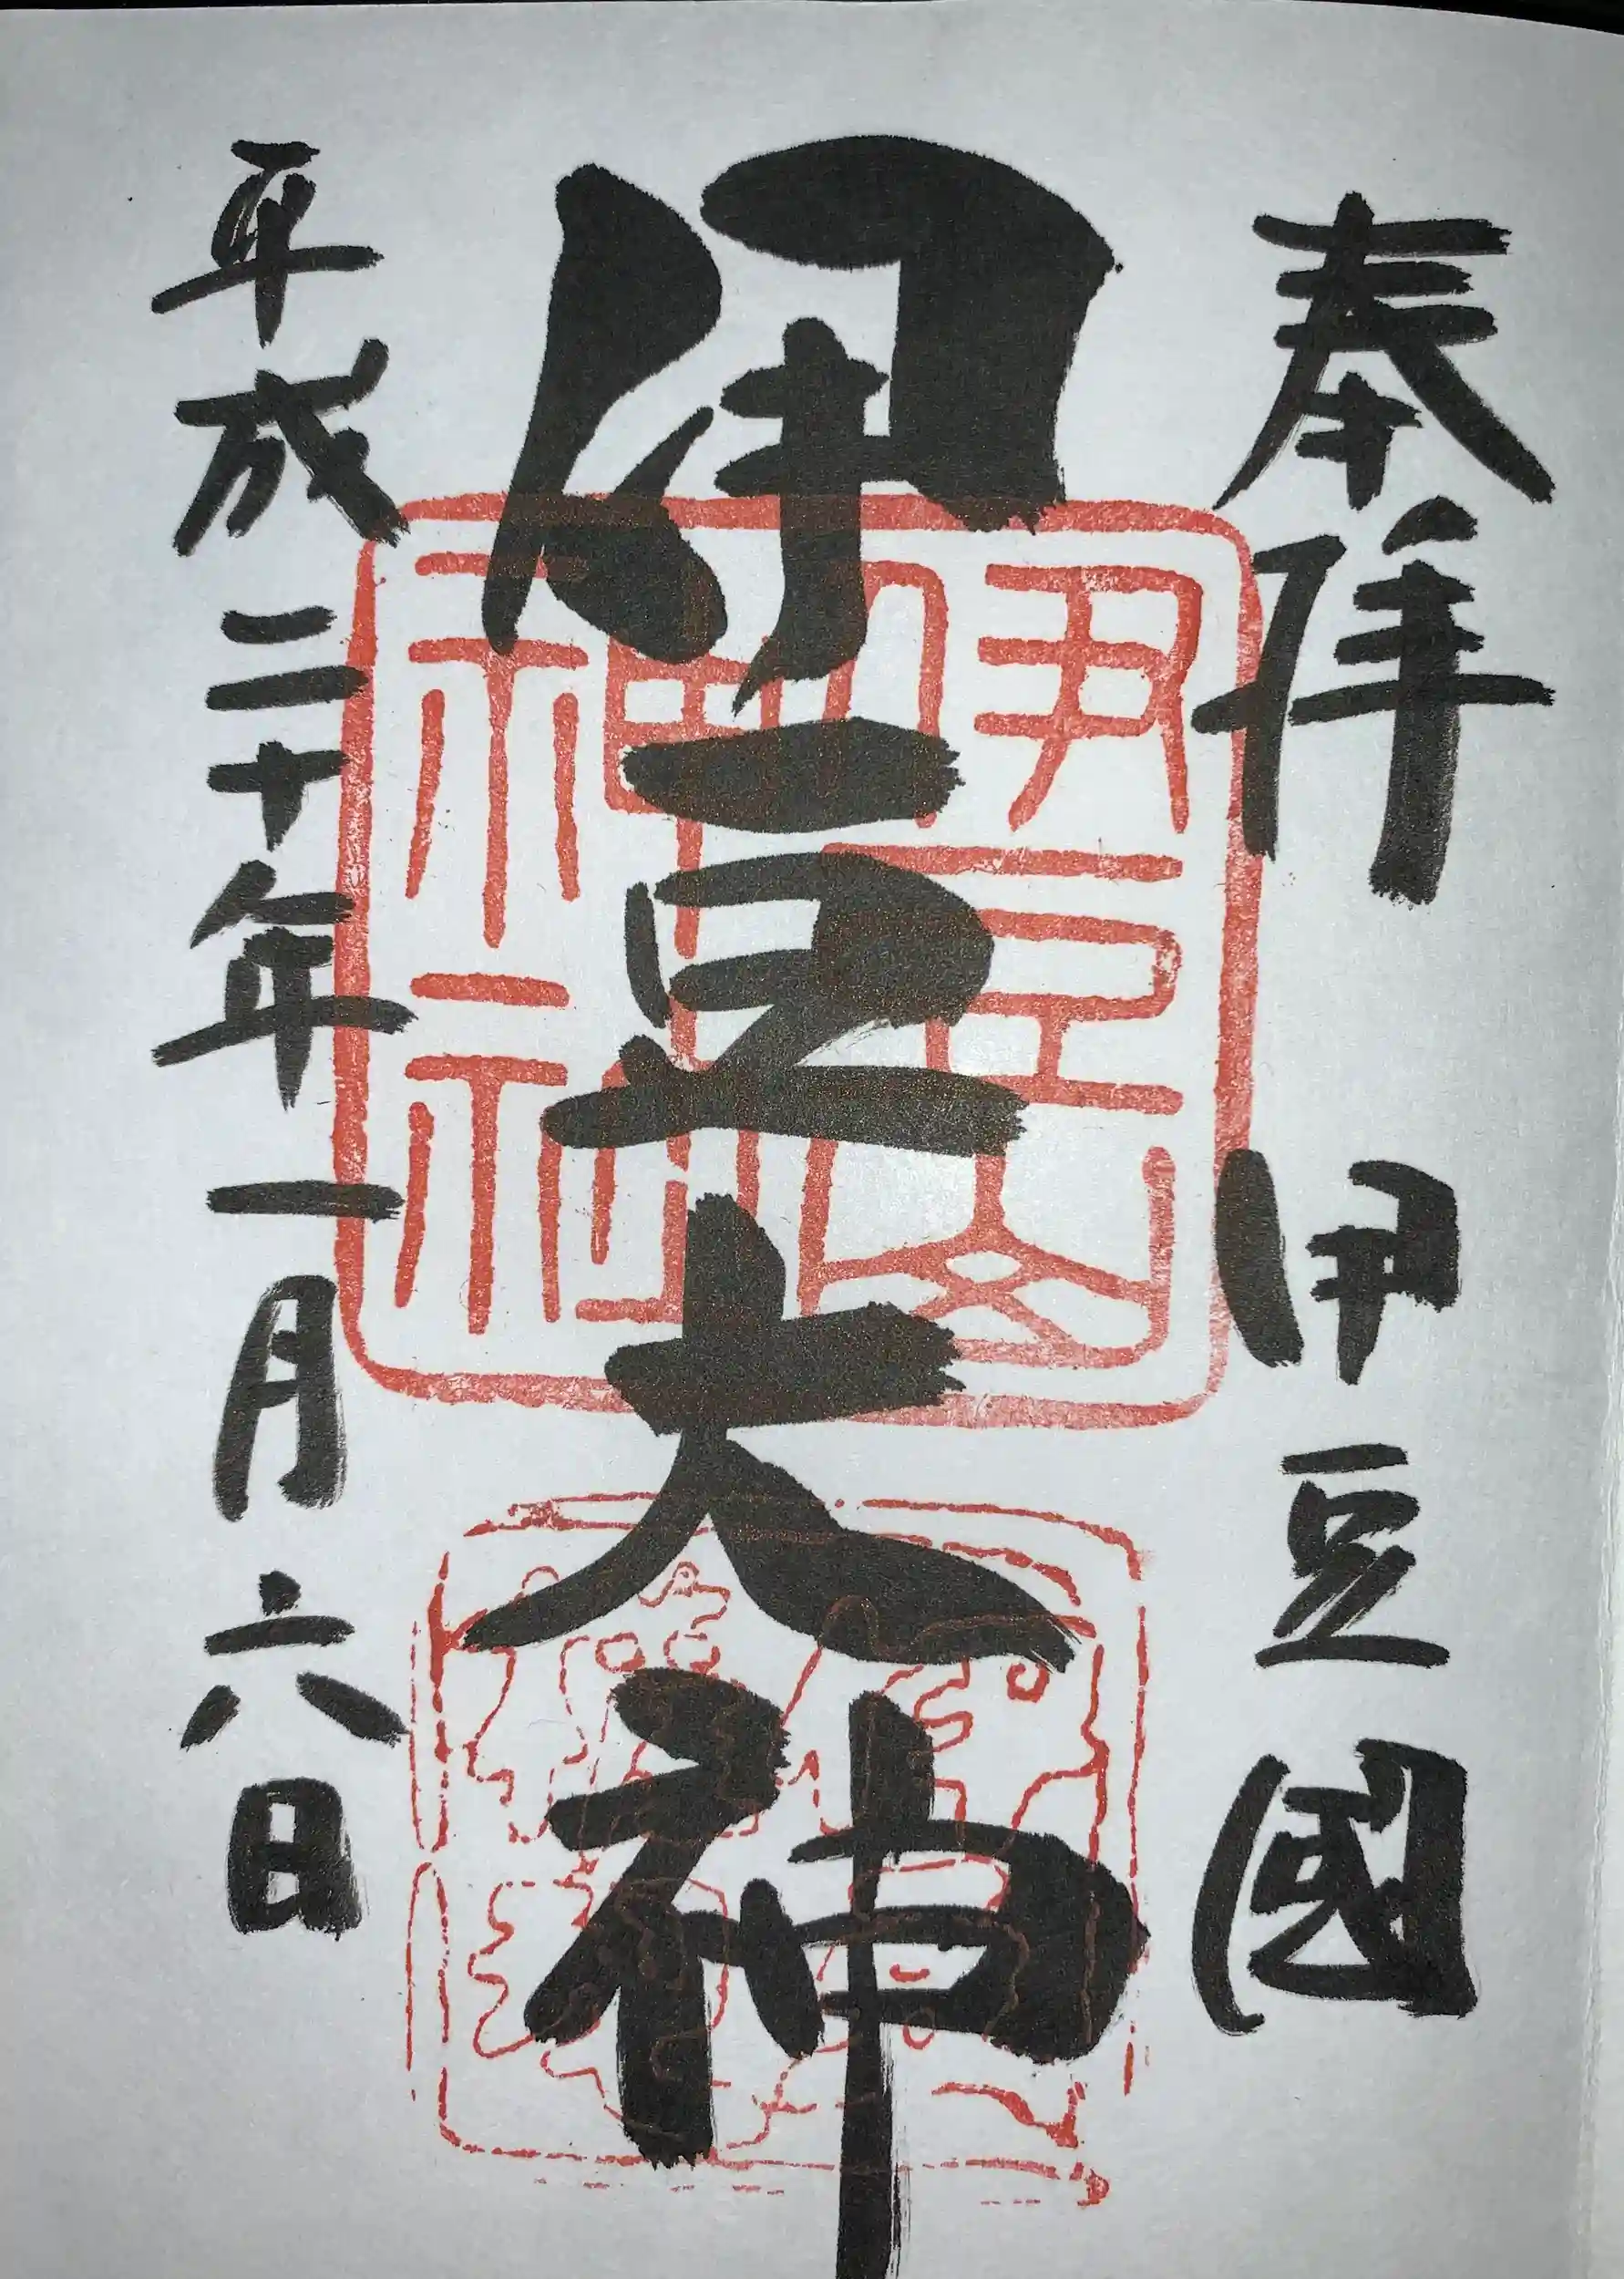 奉拝 伊豆國
伊豆大神
平成二十年一月六日